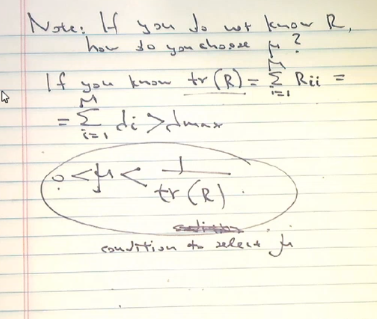 Note: If you do not know R,
how do you choose μ?
If you know tr(R) = M Σ i=1 Rii =
= M Σ i=1 λi > λmax
0 < μ < 1 / tr(R)
condition to select μ